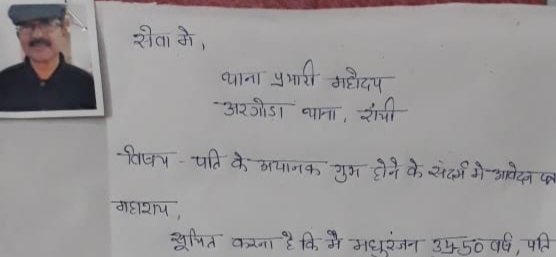 सेवा मे,
थाना प्रभारी महोदय
अरगोडा थाना, रांची
विषय - पति के अचानक गुम होने के संदर्भ मे आवेदन पत्र
महाशय,
सूचित करना है कि मै मधुरंजन उम्र 50 वर्ष, पति